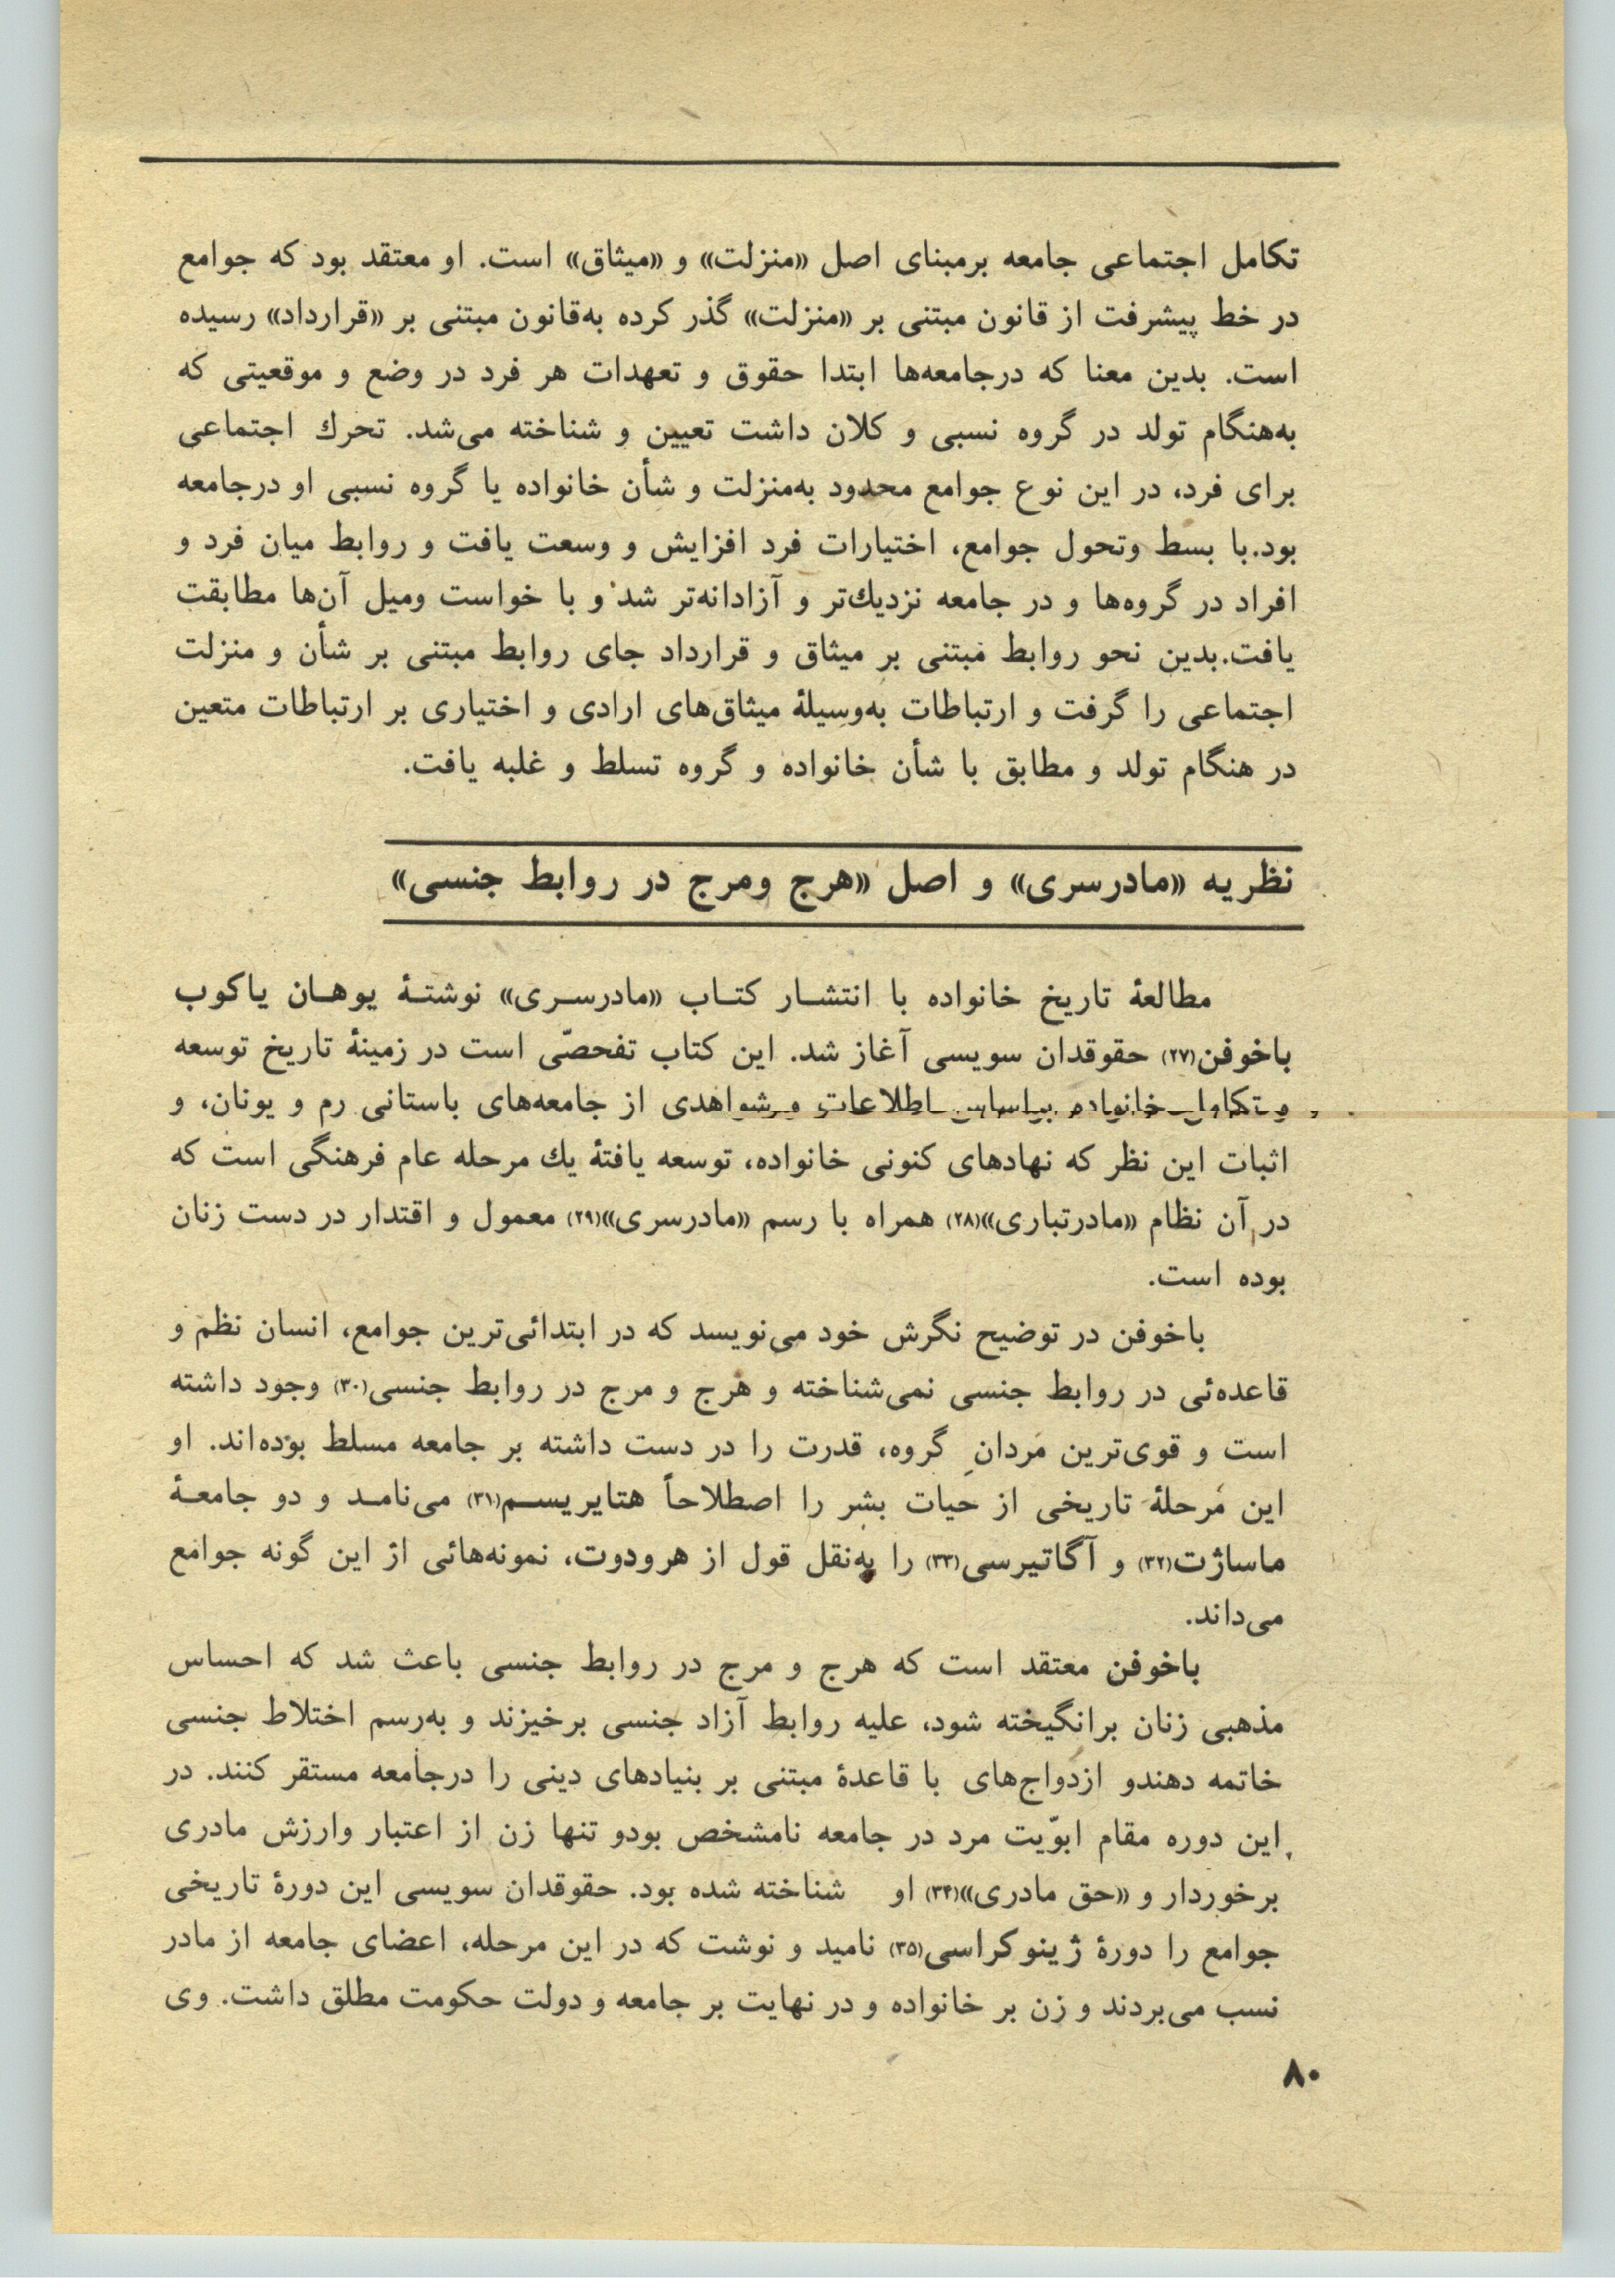 تکامل اجتماعی جامعه برمبنای اصل «منزلت» و «میثاق» است. او معتقد بود که جوامع
در خط پیشرفت از قانون مبتنی بر «منزلت» گذر کرده به‌قانون مبتنی بر «قرارداد» رسیده
است. بدین معنا که درجامعه‌ها ابتدا حقوق و تعهدات هر فرد در وضع و موقعیتی که
به‌هنگام تولد در گروه نسبی و کلان داشت تعیین و شناخته می‌شد. تحرك اجتماعی
برای فرد، در این نوع جوامع محدود به‌منزلت و شأن خانواده یا گروه نسبی او درجامعه
بود.با بسط وتحول جوامع، اختیارات فرد افزایش و وسعت یافت و روابط میان فرد و
افراد در گروه‌ها و در جامعه نزدیك‌تر و آزادانه‌تر شد و با خواست ومیل آن‌ها مطابقت
یافت.بدین نحو روابط مبتنی بر میثاق و قرارداد جای روابط مبتنی بر شأن و منزلت
اجتماعی را گرفت و ارتباطات به‌وسیلۀ میثاق‌های ارادی و اختیاری بر ارتباطات متعین
در هنگام تولد و مطابق با شأن خانواده و گروه تسلط و غلبه یافت.
نظریه «مادرسری» و اصل «هرج ومرج در روابط جنسی»
مطالعۀ تاریخ خانواده با انتشار کتاب «مادرسری» نوشتۀ یوهان یاکوب
باخوفن(۲۷) حقوقدان سویسی آغاز شد. این کتاب تفحصّی است در زمینۀ تاریخ توسعه
و تکامل خانواده براساس اطلاعات و شواهدی از جامعه‌های باستانی رم و یونان، و
اثبات این نظر که نهادهای کنونی خانواده، توسعه یافتۀ یك مرحله عام فرهنگی است که
در آن نظام «مادرتباری»(۲۸) همراه با رسم «مادرسری»(۲۹) معمول و اقتدار در دست زنان
بوده است.
باخوفن در توضیح نگرش خود می‌نویسد که در ابتدائی‌ترین جوامع، انسان نظم و
قاعده‌ئی در روابط جنسی نمی‌شناخته و هرج و مرج در روابط جنسی(۳۰) وجود داشته
است و قوی‌ترین مردانِ گروه، قدرت را در دست داشته بر جامعه مسلط بوده‌اند. او
این مرحلۀ تاریخی از حیات بشر را اصطلاحاً هتایریسم(۳۱) می‌نامد و دو جامعۀ
ماساژت(۳۲) و آگاتیرسی(۳۳) را به‌نقل قول از هرودوت، نمونه‌هائی از این گونه جوامع
می‌داند.
باخوفن معتقد است که هرج و مرج در روابط جنسی باعث شد که احساس
مذهبی زنان برانگیخته شود، علیه روابط آزاد جنسی برخیزند و به‌رسم اختلاط جنسی
خاتمه دهندو ازدواج‌های با قاعدۀ مبتنی بر بنیادهای دینی را درجامعه مستقر کنند. در
این دوره مقام ابوّیت مرد در جامعه نامشخص بودو تنها زن از اعتبار وارزش مادری
برخوردار و «حق مادری»(۳۴) او شناخته شده بود. حقوقدان سویسی این دورۀ تاریخی
جوامع را دورۀ ژینوکراسی(۳۵) نامید و نوشت که در این مرحله، اعضای جامعه از مادر
نسب می‌بردند و زن بر خانواده و در نهایت بر جامعه و دولت حکومت مطلق داشت. وی
۸۰